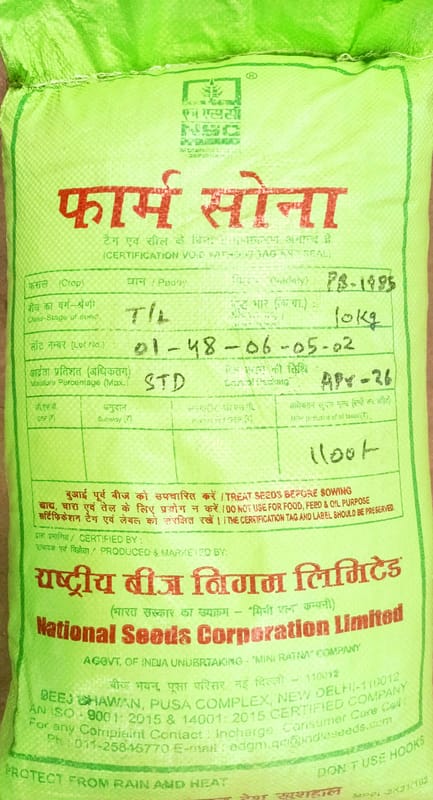 एन एस सी
NSC
®
फार्म सोना
टैग एवं सील के बिना प्रमाणीकरण अमान्य है
(CERTIFICATION VOID WITHOUT TAG AND SEAL)
फसल (Crop) धान / Paddy (Variety) PB-1985
बीज का वर्ग-श्रेणी T/L शुद्ध भार (कि.ग्रा.) : 10Kg
Class-Stage of seed
लॉट नम्बर (Lot No.) : 01-48-06-05-02
आर्द्रता प्रतिशत (अधिकतम) STD की तिथि : Apr-26
Moisture Percentage (Max.) Date of Packing
अनुदान
Subsidy (₹)
1100/-
बुआई पूर्व बीज को उपचारित करें / TREAT SEEDS BEFORE SOWING
खाद्य, चारा एवं तेल के लिए प्रयोग न करें / DO NOT USE FOR FOOD, FEED & OIL PURPOSE
सर्टिफिकेशन टैग एवं लेबल को सुरक्षित रखें । / THE CERTIFICATION TAG AND LABEL SHOULD BE PRESERVED
द्वारा प्रमाणित / CERTIFIED BY :
उत्पादक एवं विक्रेता / PRODUCED & MARKETED BY:
राष्ट्रीय बीज निगम लिमिटेड
(भारत सरकार का उपक्रम – "मिनी रत्न" कम्पनी)
National Seeds Corporation Limited
A GOVT. OF INDIA UNDERTAKING - "MINI RATNA" COMPANY
बीज भवन, पूसा परिसर, नई दिल्ली - 110012
BEEJ BHAWAN, PUSA COMPLEX, NEW DELHI-110012
AN ISO - 9001: 2015 & 14001: 2015 CERTIFIED COMPANY
For any Complaint Contact : Incharge, Consumer Care Cell :
Ph.: 011-25846770 E-mail : edgm.qc@indiaseeds.com
PROTECT FROM RAIN AND HEAT DON'T USE HOOKS
देश खुशहाल